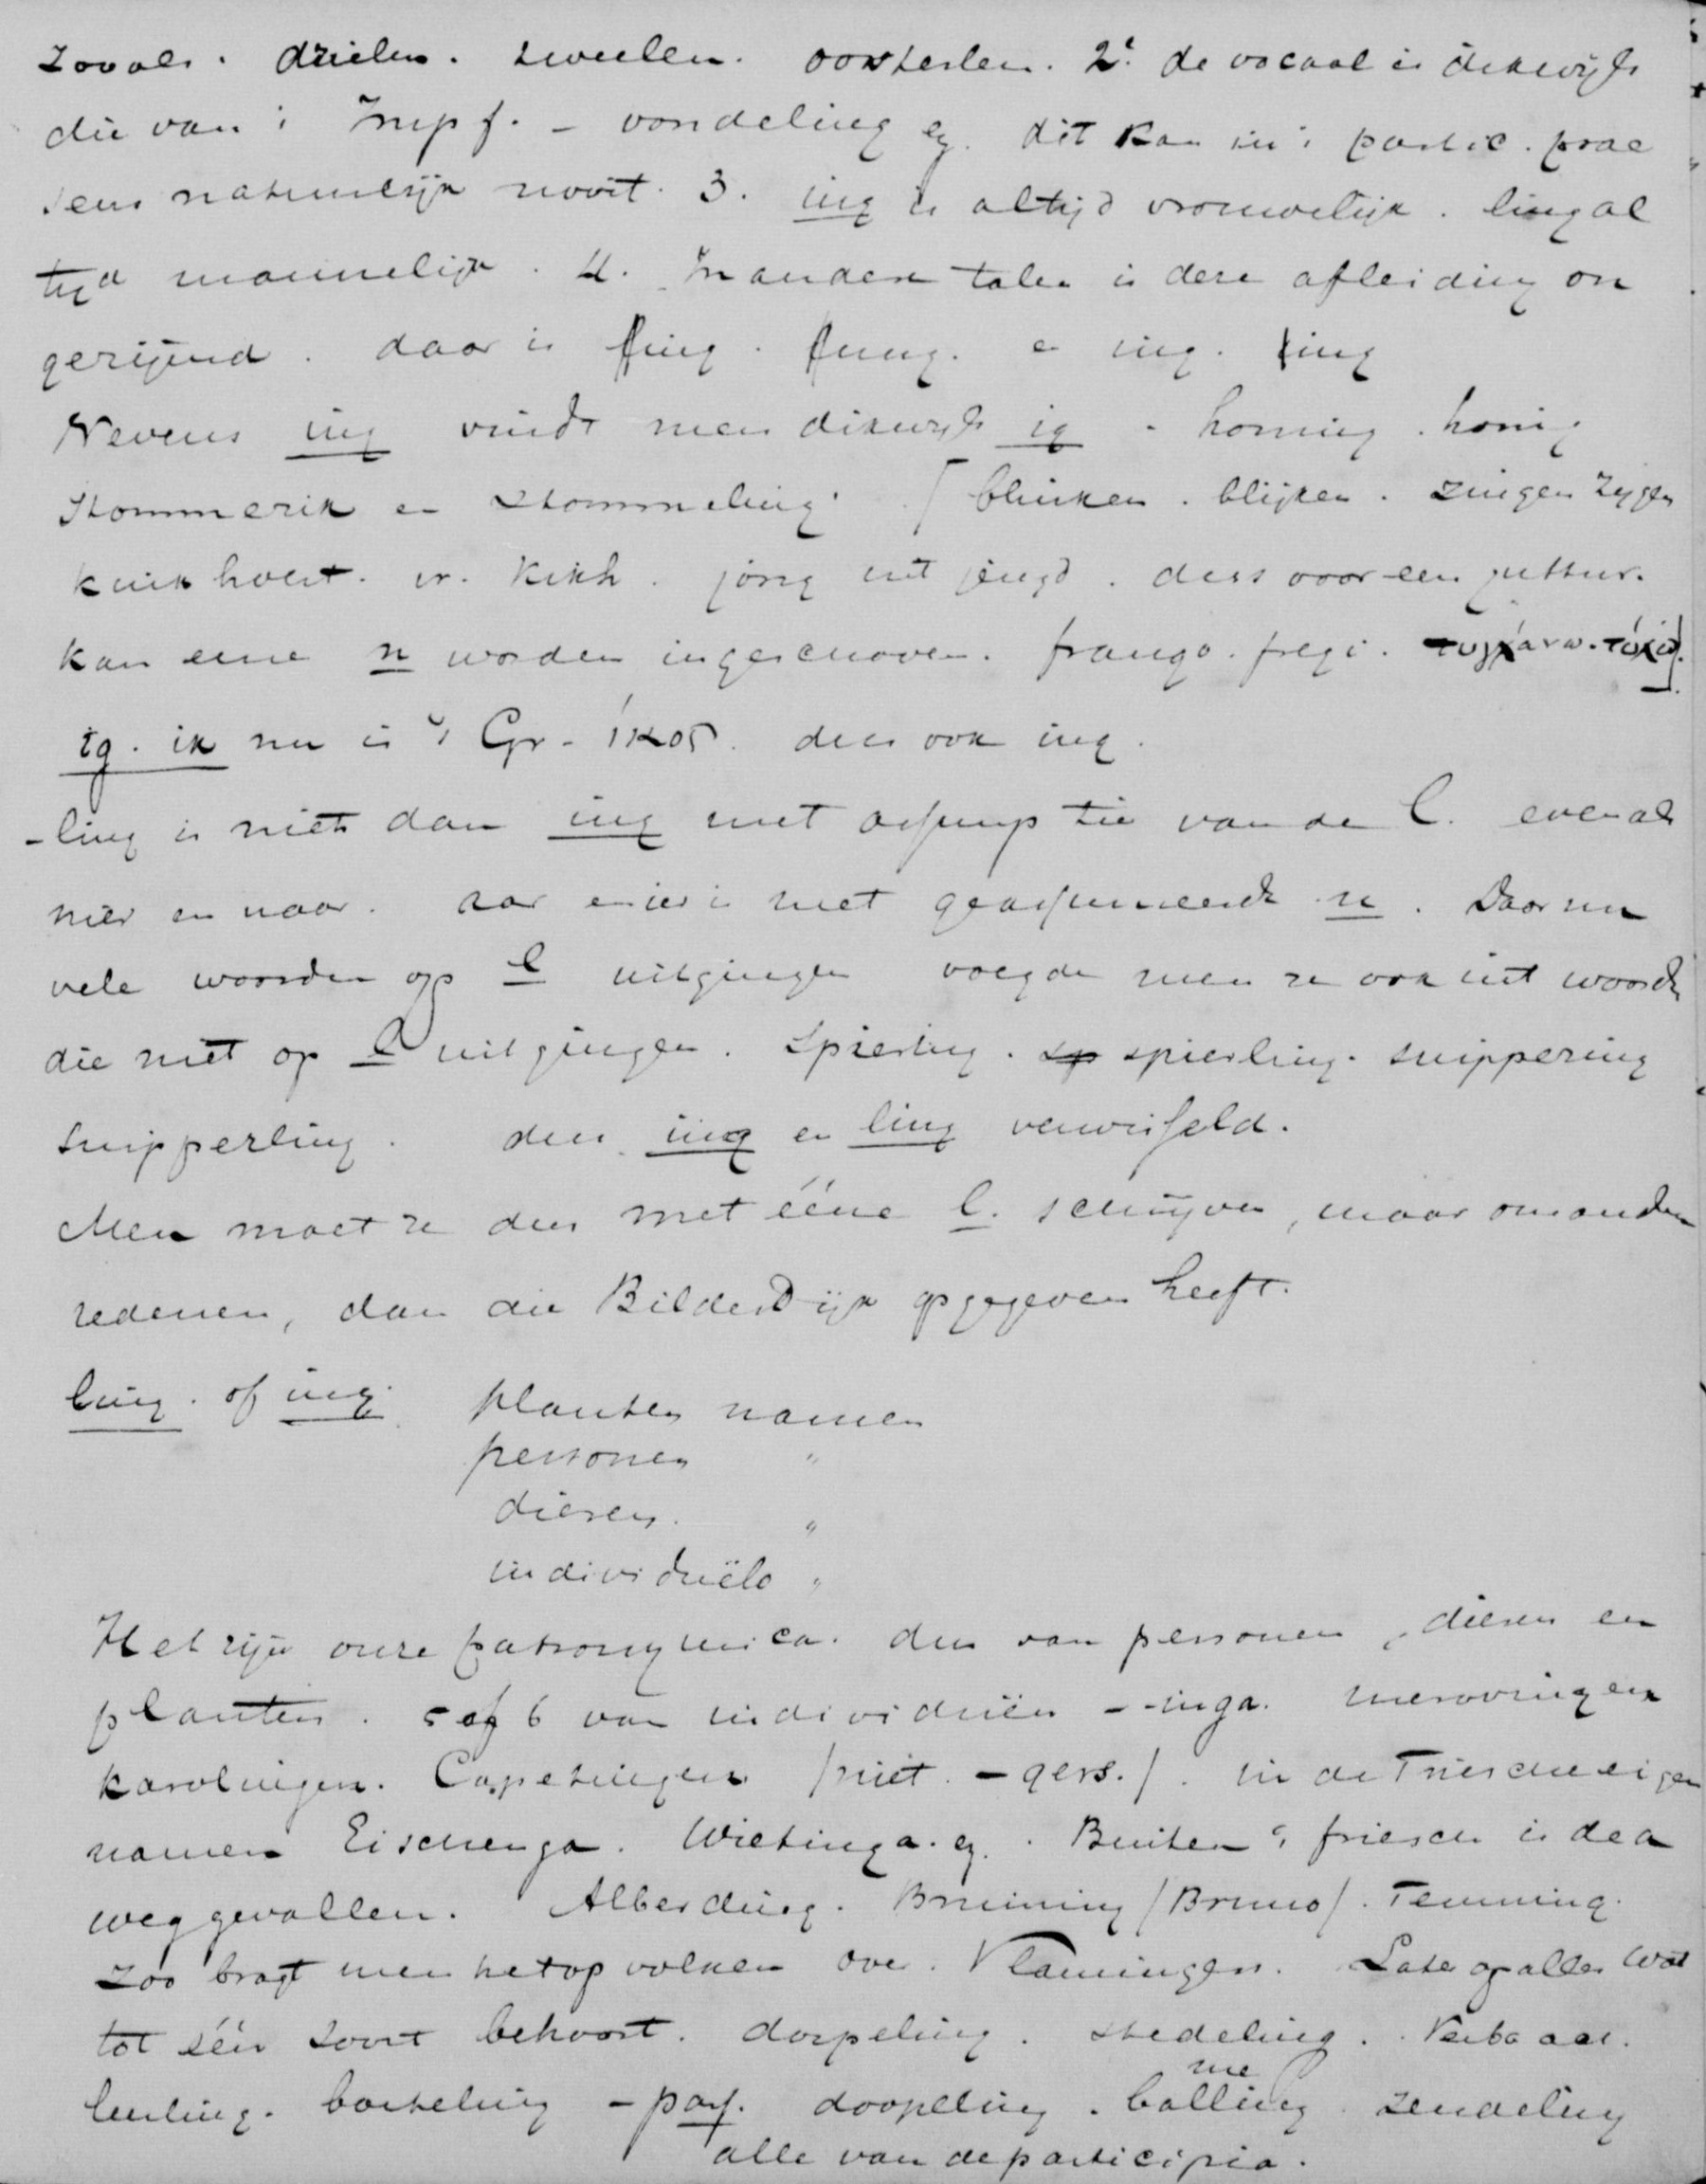 zoo als. drielen. tweelen. oosterlen. 2e de vocaal is dikwijls
die van 't Impf. - vondeling ez. dit kan in 't partic. prae
sens natuurlijk nooit. 3. ing is altijd vrouwelijk. ling al
tijd mannelijk. 4. In andere talen is deze afleiding on
gerijmd. daar is ling. lung. e ing.
Nevens ing vindt men dikwijls ig - honing. honig
Stommerik en stommeling. [blinken. blijken. zingen zijgen
kinkhoest. vr. kikh. jong uit jeugd. dus voor een guttur.
kan eene n worden ingeschoven. frango. fregi. τυγχάνω.
ig. ik nu is 't Gr. ικος. dus ook ing.
- ling is niets dan ing met assumptie van de l. evenals
nier en naar. aar en ier is met geassumeerde n. Daar nu
vele woorden op l uitgingen voegde men ze ook uit woorde
die niet op l uitgingen. Spiering. sp spierling. snippering
snipperling. dus ing en ling verwisseld.
Men moet ze dus met ééne l. schrijven, maar om andere
redenen, dan die Bilderdijk opgegeven heeft.
ling. of ing. planten namen
personen "
dieren. "
individuële "
Het zijn onze patronymica. dus van personen, dieren en
planten. 5 of 6 van individuën - -inga. merovingen
karolingen. Capetingen /niet. - gers./. in de Friesche eigen
namen Eischenga. Wietinga. ez. Buiten 't friesch is de a
weggevallen. Alberding. Bruining /Bruno/. Temming.
zoo bragt men het op volken over. Vlamingen. Later op alles wat
tot één soort behoort. dorpeling. stedeling. Verbaal.
leerling. borteling - pas. doopeling. balling zendeling
alle van de participia.